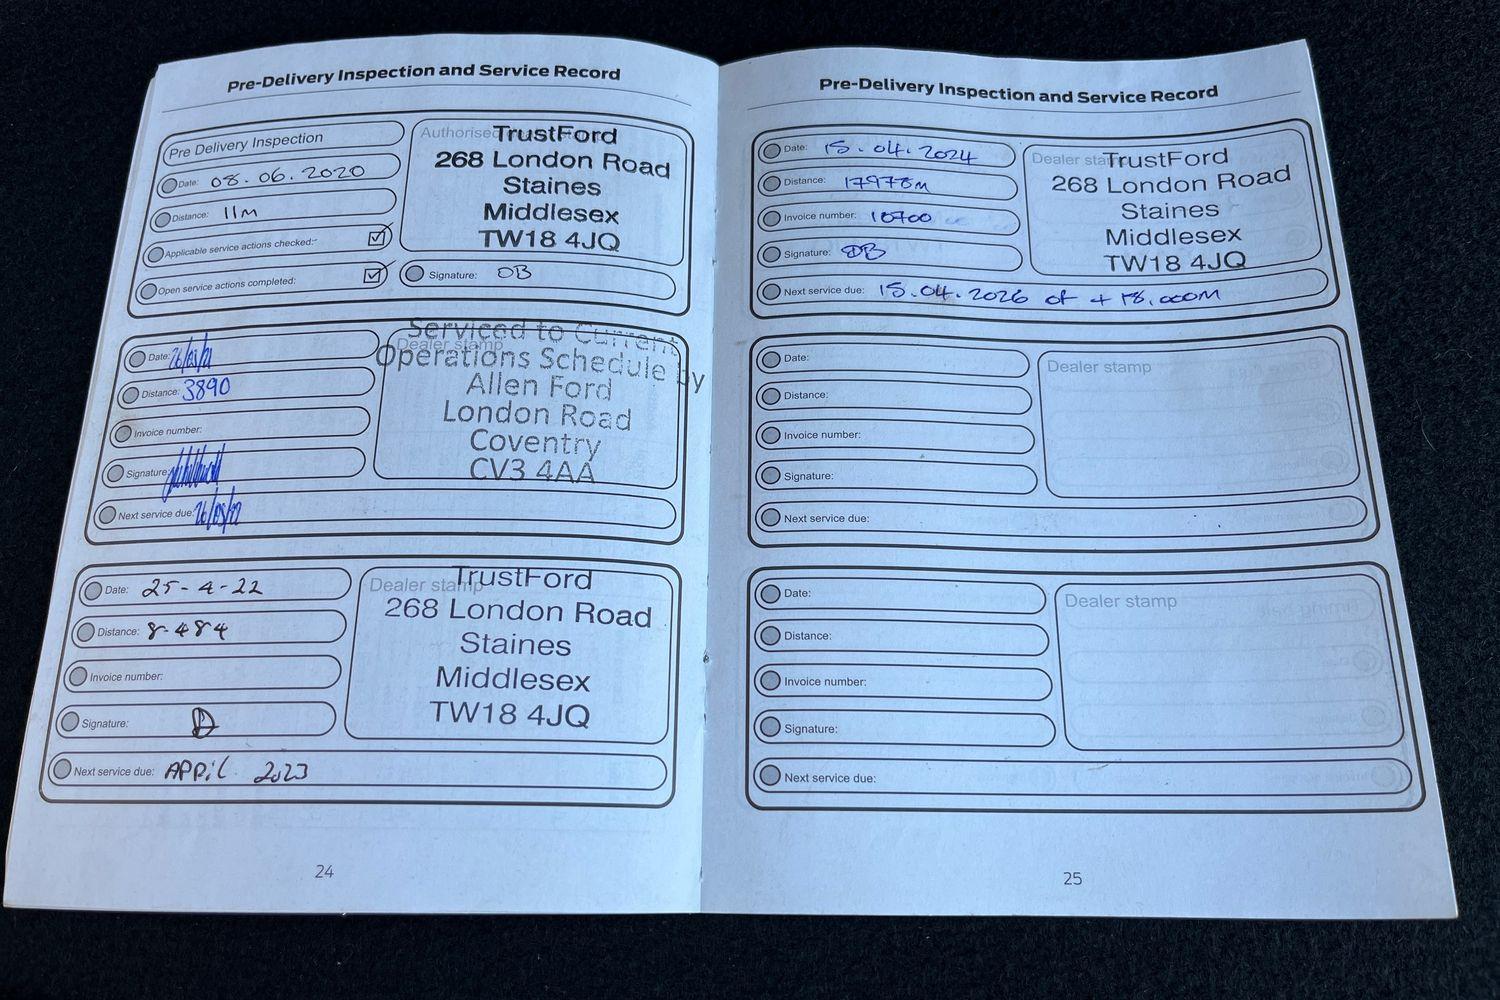 Pre-Delivery Inspection and Service Record
Pre Delivery Inspection
Date: 08.06.2020
Distance: 11m
Applicable service actions checked:
Open service actions completed:
Authorise
TrustFord
268 London Road
Staines
Middlesex
TW18 4JQ
Signature: OB
Date: 26/05/21
Distance: 3890
Invoice number:
Signature:
Next service due: 26/05/22
Dealer stamp
Serviced to Current
Operations Schedule by
Allen Ford
London Road
Coventry
CV3 4AA
Date: 25-4-22
Distance: 8.484
Invoice number:
Signature:
Next service due: APPIL 2023
Dealer stamp
TrustFord
268 London Road
Staines
Middlesex
TW18 4JQ
24
Pre-Delivery Inspection and Service Record
Date: 15.04.2024
Distance: 17978m
Invoice number: 10700
Signature: OB
Next service due: 15.04.2026 of + 18,000m
Dealer stamp
TrustFord
268 London Road
Staines
Middlesex
TW18 4JQ
Date:
Distance:
Invoice number:
Signature:
Next service due:
Dealer stamp
Date:
Distance:
Invoice number:
Signature:
Next service due:
Dealer stamp
25